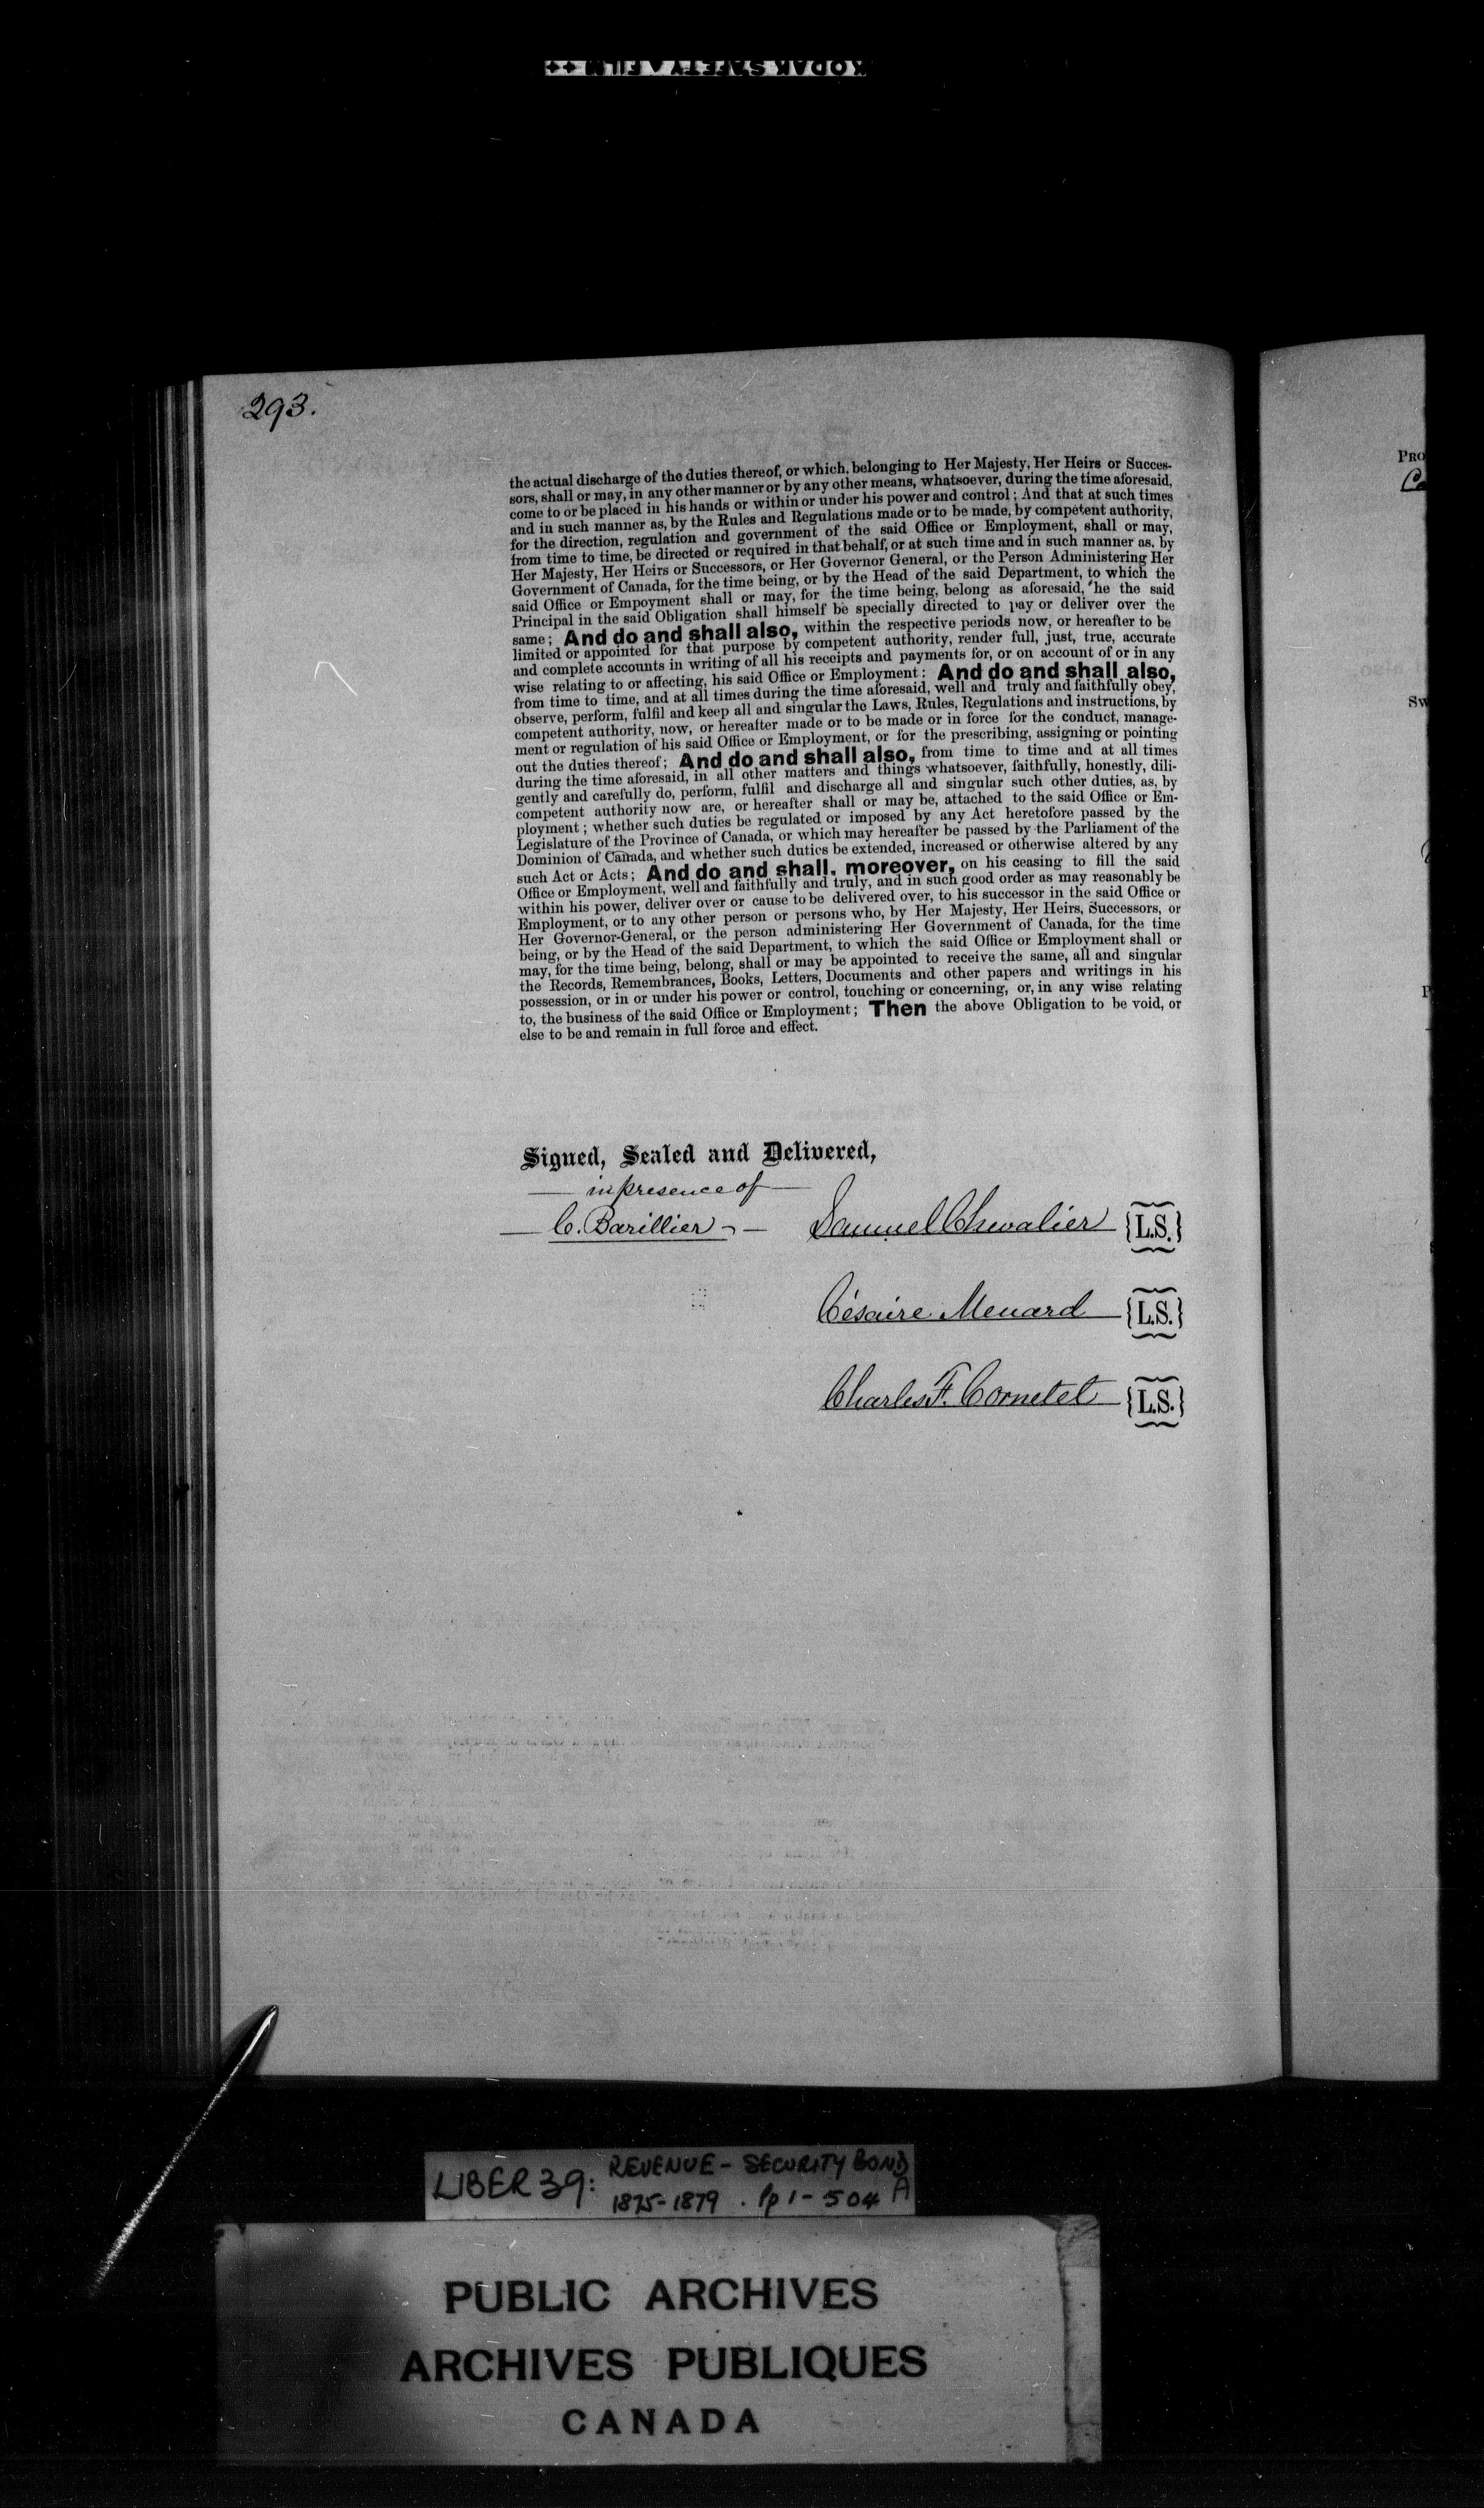 KODAK SAFETY FILM
293.
the actual discharge of the duties thereof, or which, belonging to Her Majesty, Her Heirs or Succes-
sors, shall or may, in any other manner or by any other means, whatsoever, during the time aforesaid,
come to or be placed in his hands or within or under his power and control; And that at such times
and in such manner as, by the Rules and Regulations made or to be made, by competent authority,
for the direction, regulation and government of the said Office or Employment, shall or may,
from time to time, be directed or required in that behalf, or at such time and in such manner as, by
Her Majesty, Her Heirs or Successors, or Her Governor General, or the Person Administering Her
Government of Canada, for the time being, or by the Head of the said Department, to which the
said Office or Empoyment shall or may, for the time being, belong as aforesaid, he the said
Principal in the said Obligation shall himself be specially directed to pay or deliver over the
same; And do and shall also, within the respective periods now, or hereafter to be
limited or appointed for that purpose by competent authority, render full, just, true, accurate
and complete accounts in writing of all his receipts and payments for, or on account of or in any
wise relating to or affecting, his said Office or Employment: And do and shall also,
from time to time, and at all times during the time aforesaid, well and truly and faithfully obey,
observe, perform, fulfil and keep all and singular the Laws, Rules, Regulations and instructions, by
competent authority, now, or hereafter made or to be made or in force for the conduct, manage-
ment or regulation of his said Office or Employment, or for the prescribing, assigning or pointing
out the duties thereof; And do and shall also, from time to time and at all times
during the time aforesaid, in all other matters and things whatsoever, faithfully, honestly, dili-
gently and carefully do, perform, fulfil and discharge all and singular such other duties, as, by
competent authority now are, or hereafter shall or may be, attached to the said Office or Em-
ployment; whether such duties be regulated or imposed by any Act heretofore passed by the
Legislature of the Province of Canada, or which may hereafter be passed by the Parliament of the
Dominion of Canada, and whether such duties be extended, increased or otherwise altered by any
such Act or Acts; And do and shall, moreover, on his ceasing to fill the said
Office or Employment, well and faithfully and truly, and in such good order as may reasonably be
within his power, deliver over or cause to be delivered over, to his successor in the said Office or
Employment, or to any other person or persons who, by Her Majesty, Her Heirs, Successors, or
Her Governor-General, or the person administering Her Government of Canada, for the time
being, or by the Head of the said Department, to which the said Office or Employment shall or
may, for the time being, belong, shall or may be appointed to receive the same, all and singular
the Records, Remembrances, Books, Letters, Documents and other papers and writings in his
possession, or in or under his power or control, touching or concerning, or, in any wise relating
to, the business of the said Office or Employment; Then the above Obligation to be void, or
else to be and remain in full force and effect.
Signed, Sealed and Delivered,
— in presence of —
— C. Barillier — Samuel Chevalier {L.S.}
Césaire Menard {L.S.}
Charles F. Cornetet {L.S.}
PRO
SW
LIBER 39: REVENUE - SECURITY BOND
1875-1879 . Pp 1 - 504 A
PUBLIC ARCHIVES
ARCHIVES PUBLIQUES
CANADA